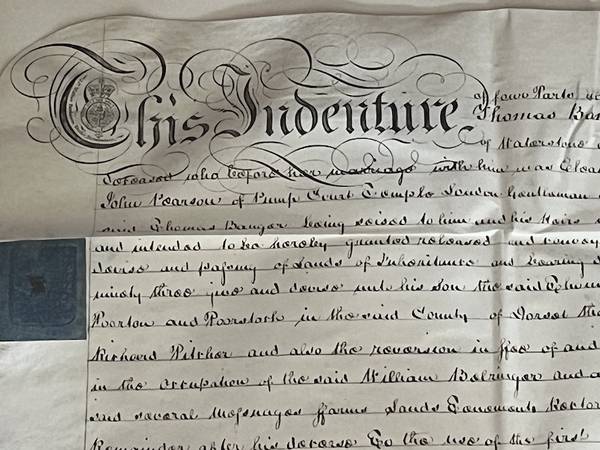 This Indenture
of four Parts
Thomas Ban
of Waterstone
deceased who before her marriage with him was
John Pearson of Pump Court Temple London Gentleman
said Thomas Banger being seised to him and his Heirs
and intended to be hereby granted released and convey
devise and passing of Lands of Inheritance and bearing
ninety three give and devise unto his son the said Thom
Poorton and Poorstock in the said County of Dorset the
Richard Pitcher and also the reversion in ffee of and
in the occupation of the said William and
said several Messuages ffarms Lands Tenements Rector
Remainder after his decease To the use of the first